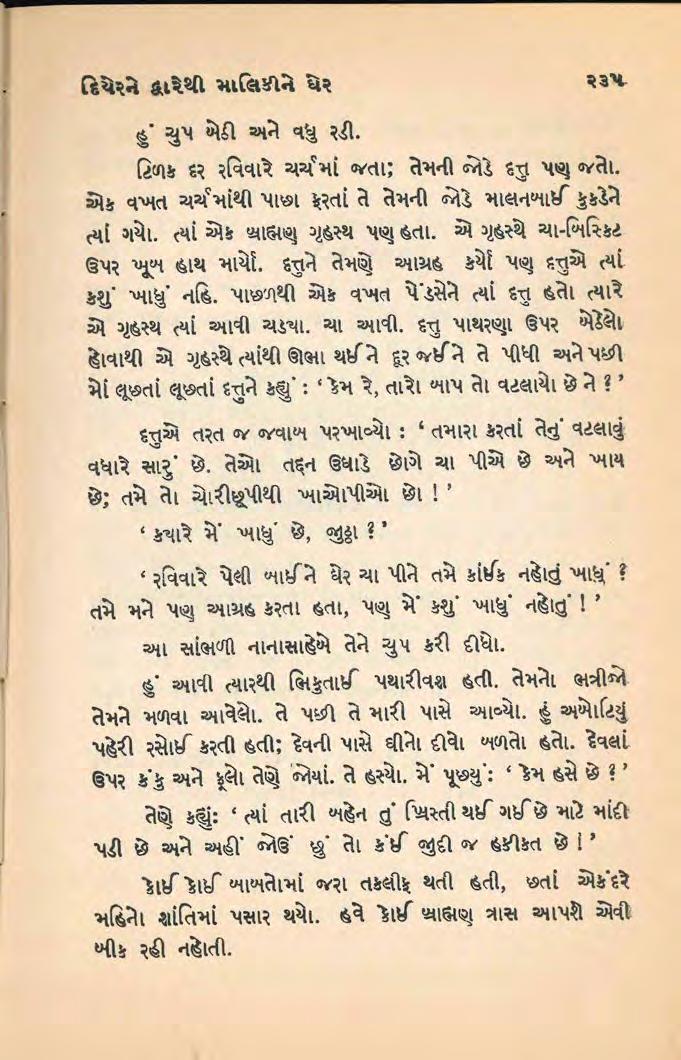 દિયેરને દ્વારેથી માલિકીને ઘેર ૨૩૫
હું ચુપ બેઠી અને વધુ રડી.
ટિળક દર રવિવારે ચર્ચમાં જતા; તેમની જોડે દત્તુ પણ જતો.
એક વખત ચર્ચમાંથી પાછા ફરતાં તે તેમની જોડે માલનબાઈ કુકડેને
ત્યાં ગયો. ત્યાં એક બ્રાહ્મણ ગૃહસ્થ પણ હતા. એ ગૃહસ્થે ચા-બિસ્કિટ
ઉપર ખૂબ હાથ માર્યો. દત્તુને તેમણે આગ્રહ કર્યો પણ દત્તુએ ત્યાં
કશું ખાધું નહિ. પાછળથી એક વખત પેંડસેને ત્યાં દત્તુ હતો ત્યારે
એ ગૃહસ્થ ત્યાં આવી ચડ્યા. ચા આવી. દત્તુ પાથરણા ઉપર બેઠેલો
હોવાથી એ ગૃહસ્થે ત્યાંથી ઊભા થઈને દૂર જઈને તે પીધી અને પછી
મોં લૂછતાં લૂછતાં દત્તુને કહ્યું : ‘કેમ રે, તારો બાપ તો વટલાયો છે ને ?’
દત્તુએ તરત જ જવાબ પરખાવ્યો : ‘તમારા કરતાં તેનું વટલાવું
વધારે સારું છે. તેઓ તદ્દન ઉઘાડે છોગે ચા પીએ છે અને ખાય
છે; તમે તો ચોરીછૂપીથી ખાઓપીઓ છો !’
‘કયારે મેં ખાધું છે, જુઠ્ઠા ?’
‘રવિવારે પેલી બાઈને ઘેર ચા પીને તમે કાંઈક નહોતું ખાધું ?
તમે મને પણ આગ્રહ કરતા હતા, પણ મેં કશું ખાધું નહોતું !’
આ સાંભળી નાનાસાહેબે તેને ચુપ કરી દીધો.
હું આવી ત્યારથી ભિકુતાઈ પથારીવશ હતી. તેમનો ભત્રીજો
તેમને મળવા આવેલો. તે પછી તે મારી પાસે આવ્યો. હું અબોટિયું
પહેરી રસોઈ કરતી હતી; દેવની પાસે ઘીનો દીવો બળતો હતો. દેવલાં
ઉપર કંકુ અને ફૂલો તેણે જોયાં. તે હસ્યો. મેં પૂછ્યું : ‘કેમ હસે છે ?’
તેણે કહ્યું: ‘ત્યાં તારી બહેન તું ખ્રિસ્તી થઈ ગઈ છે માટે માંદી
પડી છે અને અહીં જોઉં છું તો કંઈ જુદી જ હકીકત છે !’
કોઈ કોઈ બાબતોમાં જરા તકલીફ થતી હતી, છતાં એકંદરે
મહિનો શાંતિમાં પસાર થયો. હવે કોઈ બ્રાહ્મણ ત્રાસ આપશે એવી
બીક રહી નહોતી.